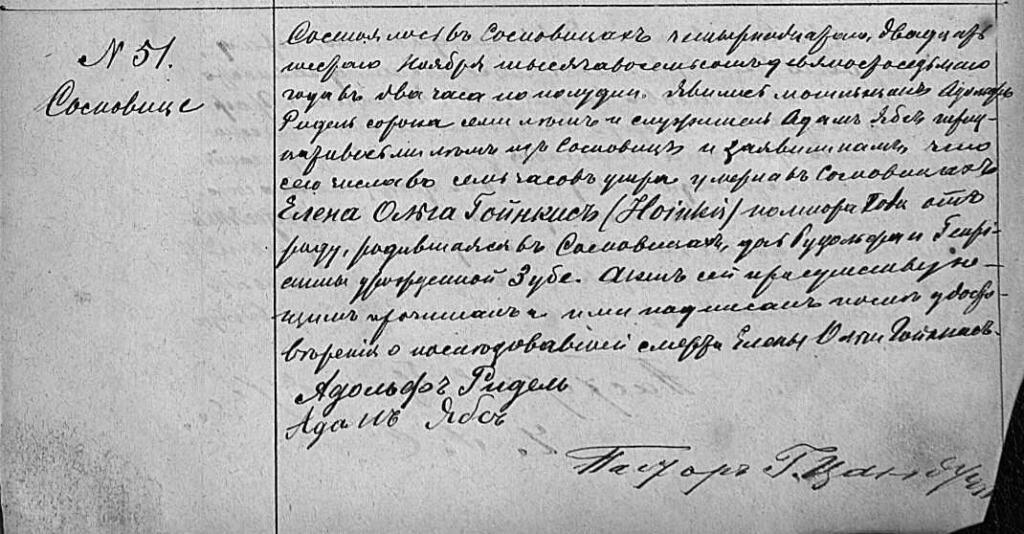 N 51.
Сосновице
Состоялось въ Сосновицахъ четырнадцатаго, двадцать
шестаго Ноября тысяча восемьсотъ девяносто седьмаго
года въ два часа по полудни. Явились Адольфъ
Ридель сорока семи лѣтъ и служитель Адамъ Ябсъ
лѣтъ изъ Сосновицъ и заявили намъ, что
сего числа въ семь часовъ утра умерла въ Сосновицахъ
Елена Ольга Гойнкисъ (Hoinkis) полтора года отъ
роду, родившаяся въ Сосновицахъ, дочь Рудольфа и Генрі-
етты урожденной Зубе. Актъ сей присутствую-
щимъ прочитанъ и ими подписанъ послѣ удосто-
вѣренія о послѣдовавшей смерти Елены Ольги Гойнкисъ.
Адольфъ Ридель
Адамъ Ябсъ
Пасторъ Г.